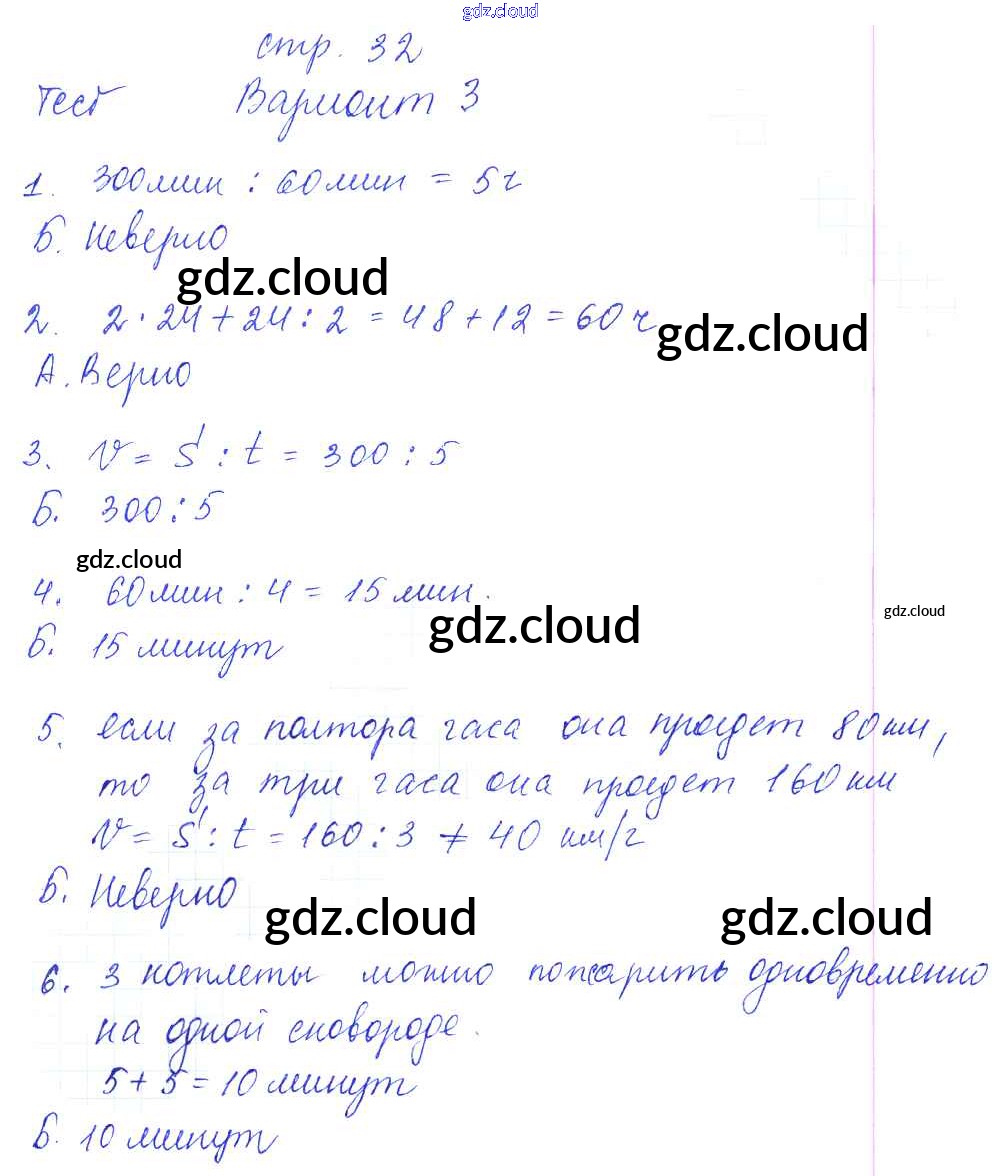 gdz.cloud
стр. 32
Тест Вариант 3
1. 300мин : 60мин = 5ч
Б. Неверно
gdz.cloud
2. 2·24+24:2=48+12=60ч
gdz.cloud
А. Верно
3. V = S : t = 300 : 5
Б. 300:5
gdz.cloud
4. 60мин : 4 = 15мин.
gdz.cloud
gdz.cloud
Б. 15 минут
5. если за полтора часа она проедет 80км,
то за три часа она проедет 160км
V = S : t = 160 : 3 ≠ 40 км/ч
Б. Неверно
gdz.cloud gdz.cloud
6. 3 котлеты можно пожарить одновременно
на одной сковороде.
5+5=10минут
Б. 10 минут